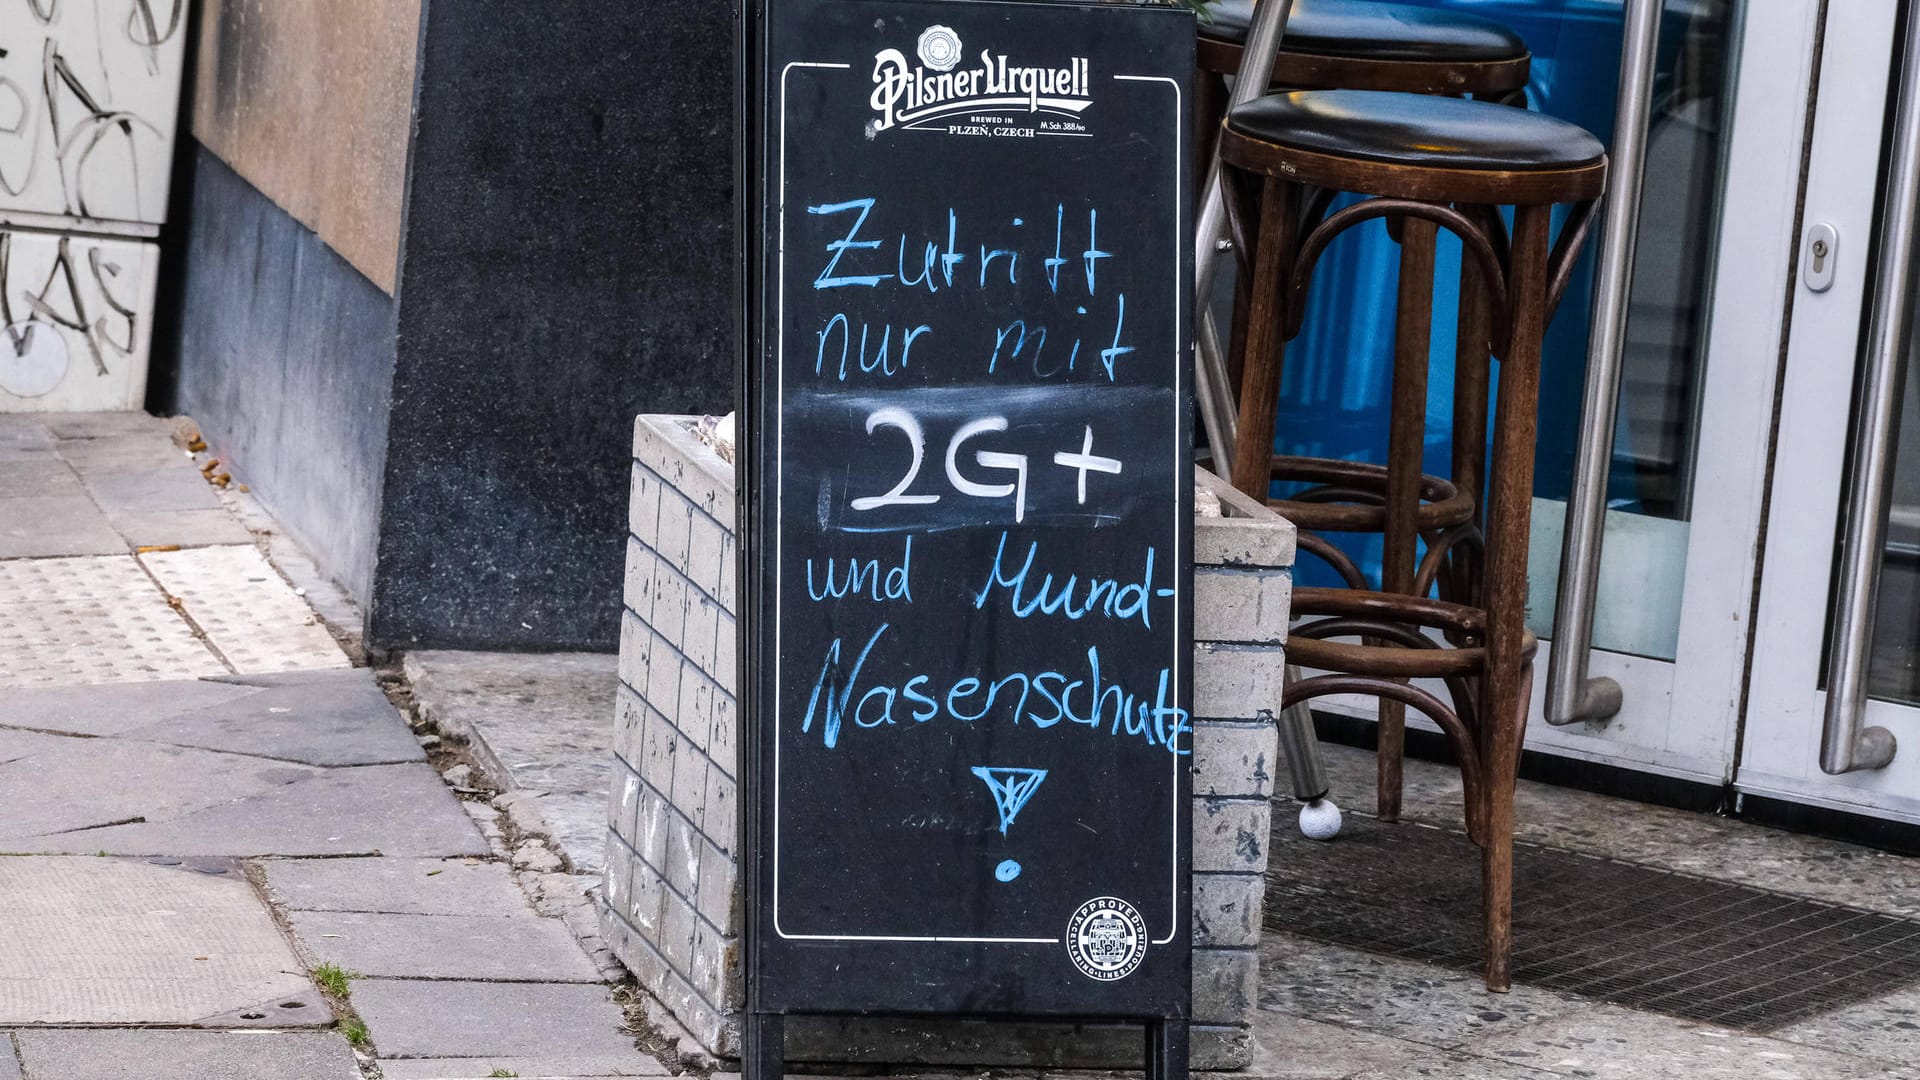 Pilsner Urquell
BREWED IN
PLZEŇ, CZECH
M.Sch 388/90
Zutritt
nur mit
2G+
und Mund-
Nasenschutz
!
APPROVED
CELLARING · LINES · POURING
TON